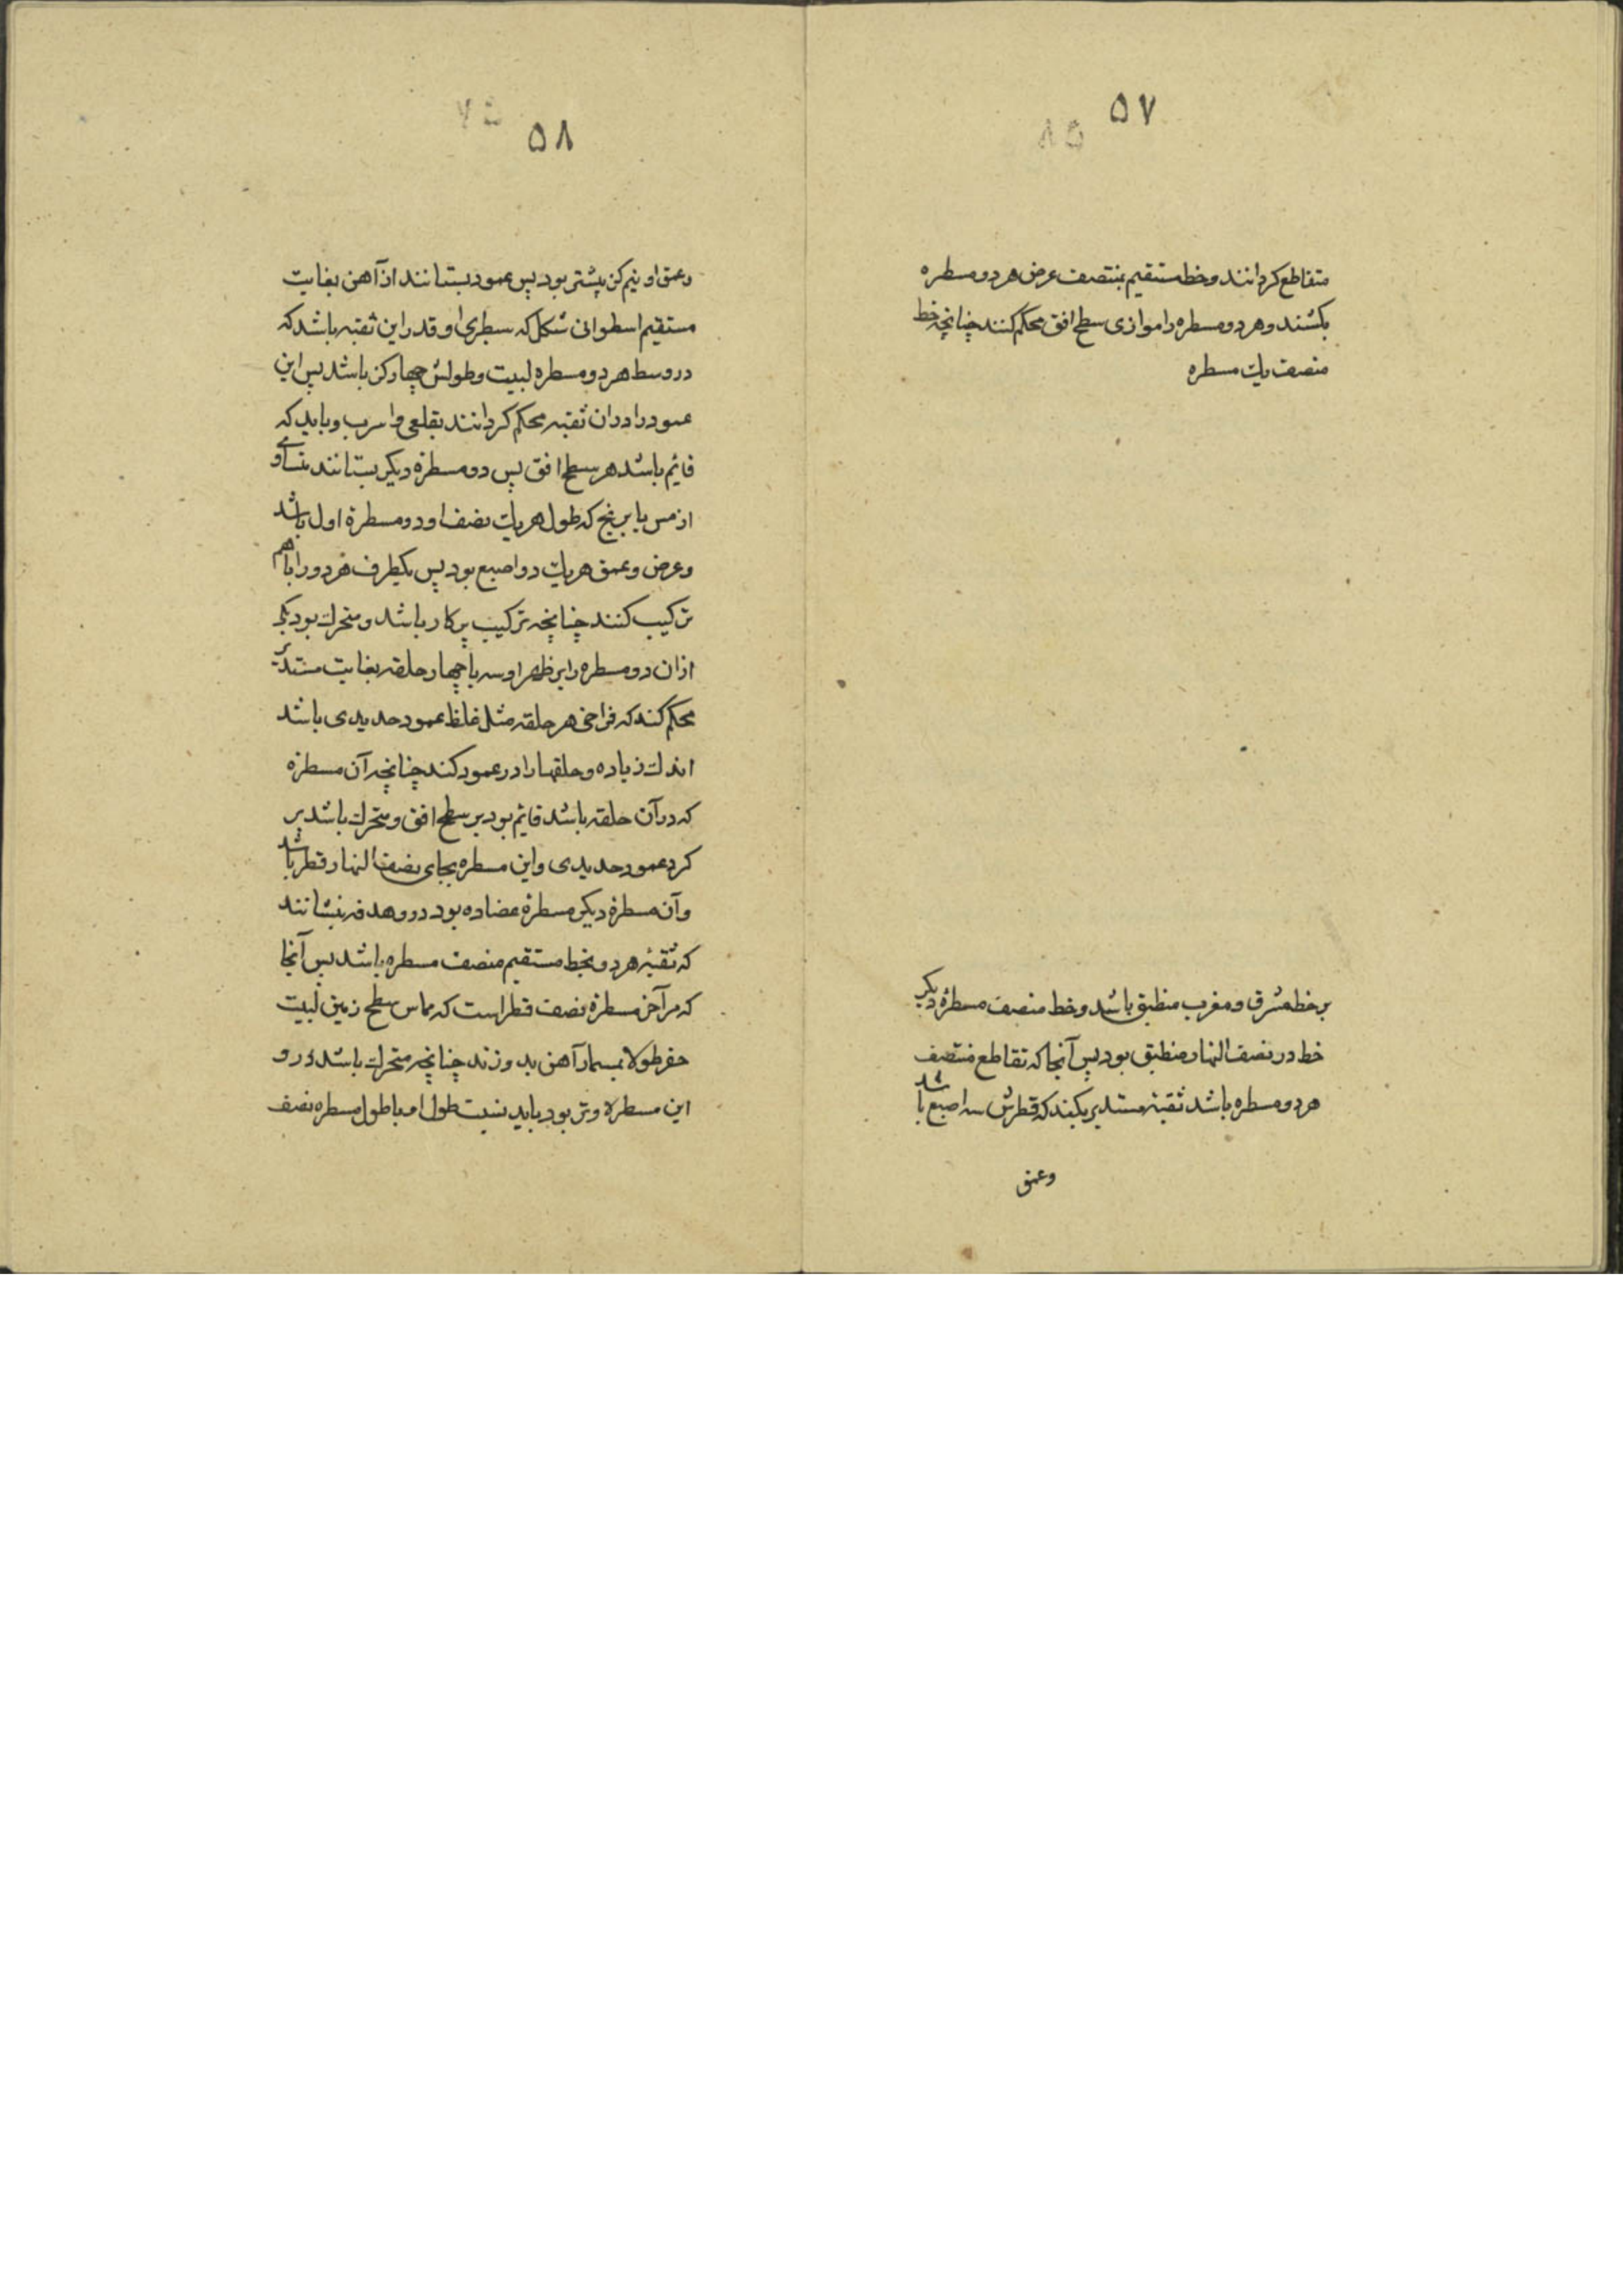 ۵۷
متقاطع کردانند و خط مستقیم بمنتصف عرض هر دو مسطره
بکشند و هر دو مسطره را موازی سطح افق محکم کنند چنانچه خط
منصف یک مسطره
بر خط مشرق و مغرب منطبق باشد و خط منصف مسطرهٔ دیکر
خط در نصف النهار منطبق بود پس آنجا که تقاطع منتصف
هر دو مسطره باشد ثقبهٔ مستدیر بکنند که قطرش سه اصبع باشد
وعمق
۵۸
وعمق او نیم کز پیشتر بود پس عمود بستانند از آهن بغایت
مستقیم اسطوانی شکل که سطبری او قدر این ثقبه باشد که
در وسط هر دو مسطره لبیت و طولش چهار کز باشد پس این
عمود را در ان ثقبه محکم کردانند بقلعی و اسرب و باید که
قایم باشد هر سطح افق پس دو مسطرهٔ دیکر بستانند متساوی
از مس یا برنج که طول هر یک نصف او دو مسطرهٔ اول باشد
وعرض وعمق هر یک دو اصبع بود پس یکطرف هر دو را باهم
ترکیب کنند چنانچه ترکیب پرکار باشد و متحرک بود یکی
ازان دو مسطره را بر ظهر او سه یا چهار حلقه بغایت مستدیر
محکم کند که فراخی هر حلقه مثل غلظ عمود حدیدی باشد
اندک زیاده و حلقها را در عمود کند چنانچه آن مسطره
که در آن حلقه باشد قایم بود بر سطح افق و متحرک باشد بر
کرد عمود حدیدی و این مسطره بجای نصف النهار قطر باشد
وآن مسطرهٔ دیکر مسطرهٔ عضاده بود در و هدفه بنشانند
که ثقبهٔ هر دو بخط مستقیم منصف مسطره باشد پس آنجا
که مر آخر مسطرهٔ نصف قطر است که مماس سطح زمین لبیت
حفر طولا بمسمار آهن بدوزند چنانچه متحرک باشد درو
این مسطرهٔ وتر بود باید نسبت طول او با طول مسطره نصف